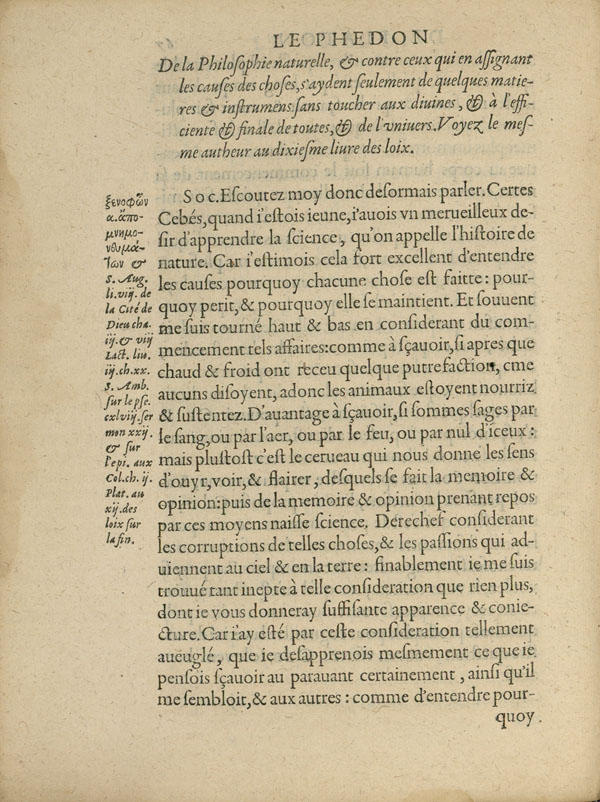 LE PHEDON
De la Philosophie naturelle, & contre ceux qui en aſſignant
les cauſes des choſes, s'aydent ſeulement de quelques matie-
res & inſtrumens: ſans toucher aux diuines, & à l'effi-
ciente & finale de toutes, & de l'vniuers. Voyez le meſ-
me autheur au dixieſme liure des loix.
Soc. Eſcoutez moy donc deſormais parler. Certes
Cebés, quand i'eſtois ieune, i'auois vn merueilleux de-
ſir d'apprendre la ſcience, qu'on appelle l'hiſtoire de
nature. Car i'eſtimois cela fort excellent d'entendre
les cauſes pourquoy chacune choſe eſt faitte: pour-
quoy perit, & pourquoy elle ſe maintient. Et ſouuent
me ſuis tourné haut & bas en conſiderant du com-
mencement tels affaires: comme à ſçauoir, ſi apres que
chaud & froid ont receu quelque putrefaction, cme
aucuns diſoyent, adonc les animaux eſtoyent nourriz
& ſuſtentez. D'auantage à ſçauoir, ſi ſommes ſages par
le ſang, ou par l'aer, ou par le feu, ou par nul d'iceux:
mais pluſtoſt c'eſt le cerueau qui nous donne les ſens
d'ouyr, voir, & flairer, deſquels ſe fait la memoire &
opinion: puis de la memoire & opinion prenant repos
par ces moyens naiſſe ſcience. Derechef conſiderant
les corruptions de telles choſes, & les paſſions qui ad-
uiennent au ciel & en la terre: finablement ie me ſuis
trouué tant inepte à telle conſideration que rien plus,
dont ie vous donneray ſuffiſante apparence & conie-
cture. Car i'ay eſté par ceſte conſideration tellement
aueuglé, que ie deſapprenois meſmement ce que ie
penſois ſçauoir au parauant certainement, ainſi qu'il
me ſembloit, & aux autres: comme d'entendre pour-
quoy
ξενοφῶν
α. ἀπο-
μνημο-
νθυμά-
των &
S. Aug.
li. viij. de
la Cité de
Dieu cha.
iij. & viij
Lact. liu.
iij. ch. xx.
S. Amb.
ſur le pſe.
cxlviij. ſer
mon xxij.
& ſur
l'epi. aux
Col. ch. ij.
Plat. au
xij. des
loix ſur
la fin.